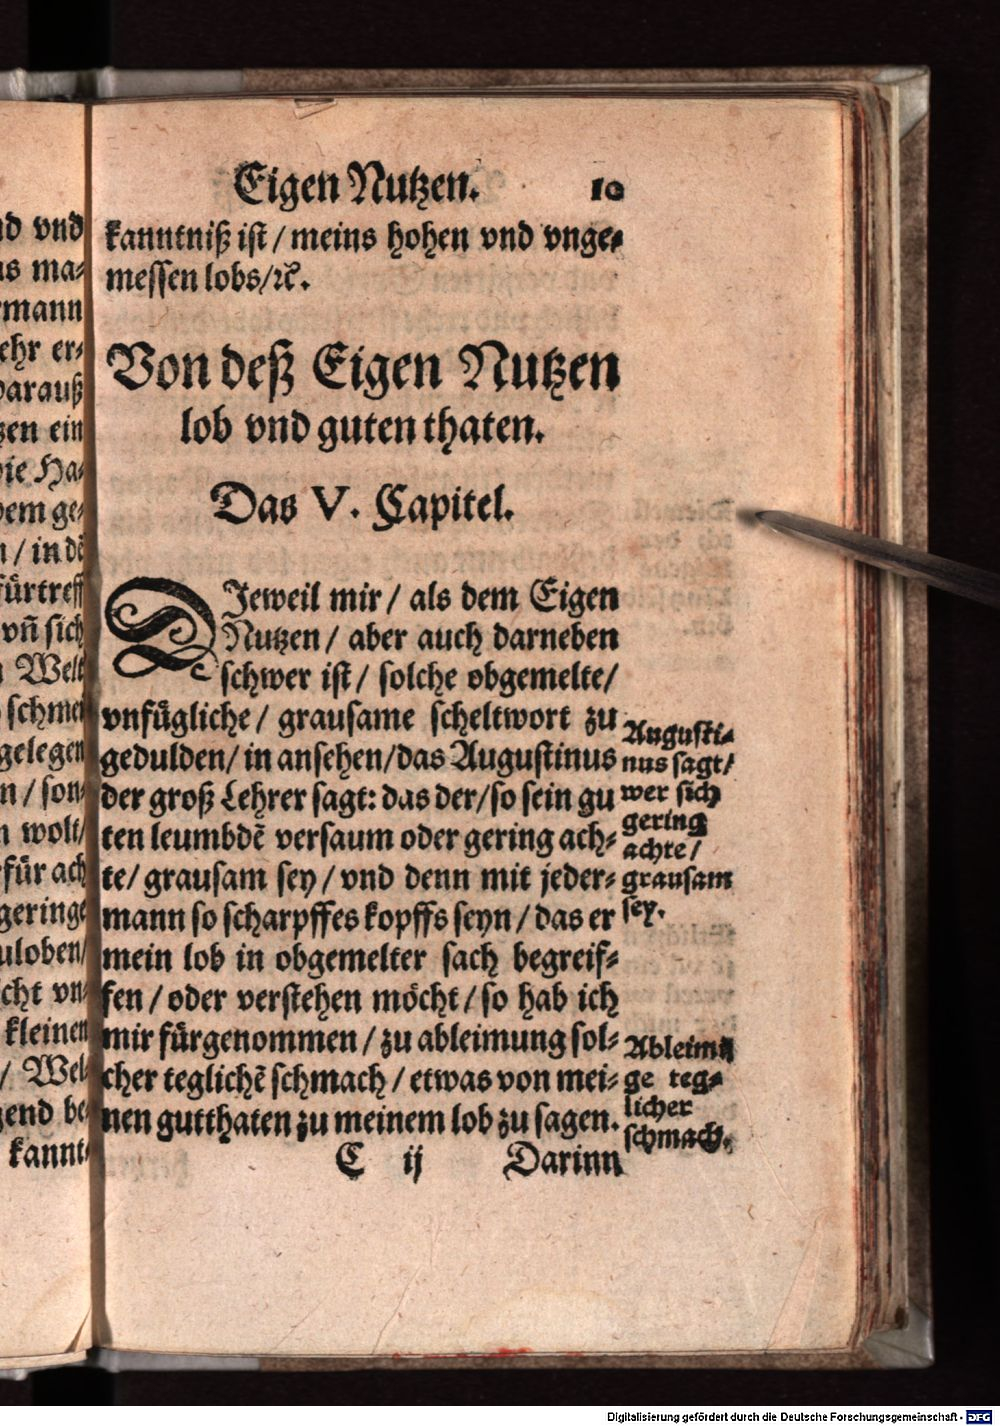 Eigen Nutzen. 10
kanntniß ist / meins hohen vnd vnge-
messen lobs/ꝛc.
Von deß Eigen Nutzen
lob vnd guten thaten.
Das V. Capitel.
DJeweil mir / als dem Eigen
Nutzen / aber auch darneben
schwer ist / solche obgemelte/
vnfügliche / grausame scheltwort zu
gedulden / in ansehen/das Augustinus
der groß Lehrer sagt: das der/so sein gu
ten leumbdẽ versaum oder gering ach-
te/ grausam sey / vnd denn mit jeder-
mann so scharpffes kopffs seyn / das er
mein lob in obgemelter sach begreif-
fen / oder verstehen möcht / so hab ich
mir fürgenommen / zu ableimung sol-
cher teglichẽ schmach / etwas von mei-
nen gutthaten zu meinem lob zu sagen.
C ij Darinn
Augusti-
nus sagt/
wer sich
gering
achte/
grausam
sey.
Ableimũ
ge teg-
licher
schmach.
vnd
ma-
rmann
ehr er-
darauß
zen ein
die Ha-
dem ge-
n / in dẽ
fürtreff
vñ sich
Welt
schmei
gelegen
n / son-
n wolt/
für ach
geringe
uloben/
cht vn-
kleinen
/ Wel-
gend be-
kannt-
Digitalisierung gefördert durch die Deutsche Forschungsgemeinschaft - DFG